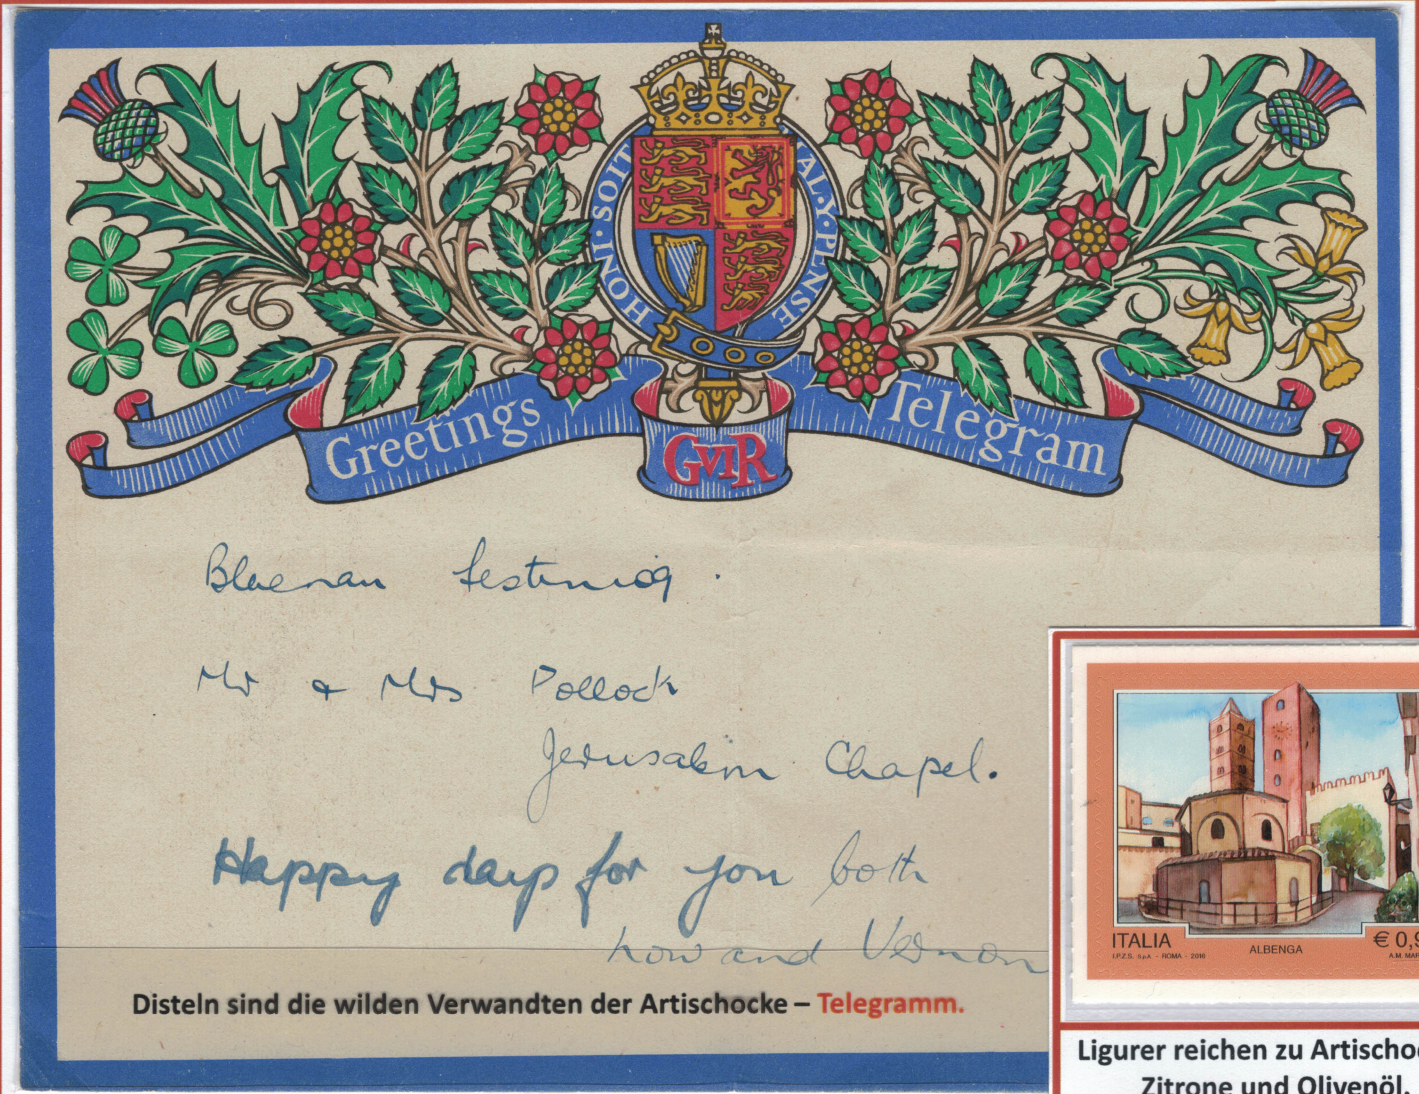 HONI·SOIT
AL·Y·PENSE
Greetings
GVIR
Telegram
Blaenau Festiniog.
Mr & Mrs Pollock
Jerusalem Chapel.
Happy days for you both
and Vernon
Disteln sind die wilden Verwandten der Artischocke – Telegramm.
ITALIA
ALBENGA
€ 0,9
I.P.Z.S. S.p.A. - ROMA - 2016
A.M. MAR
Ligurer reichen zu Artischo
Zitrone und Olivenöl.